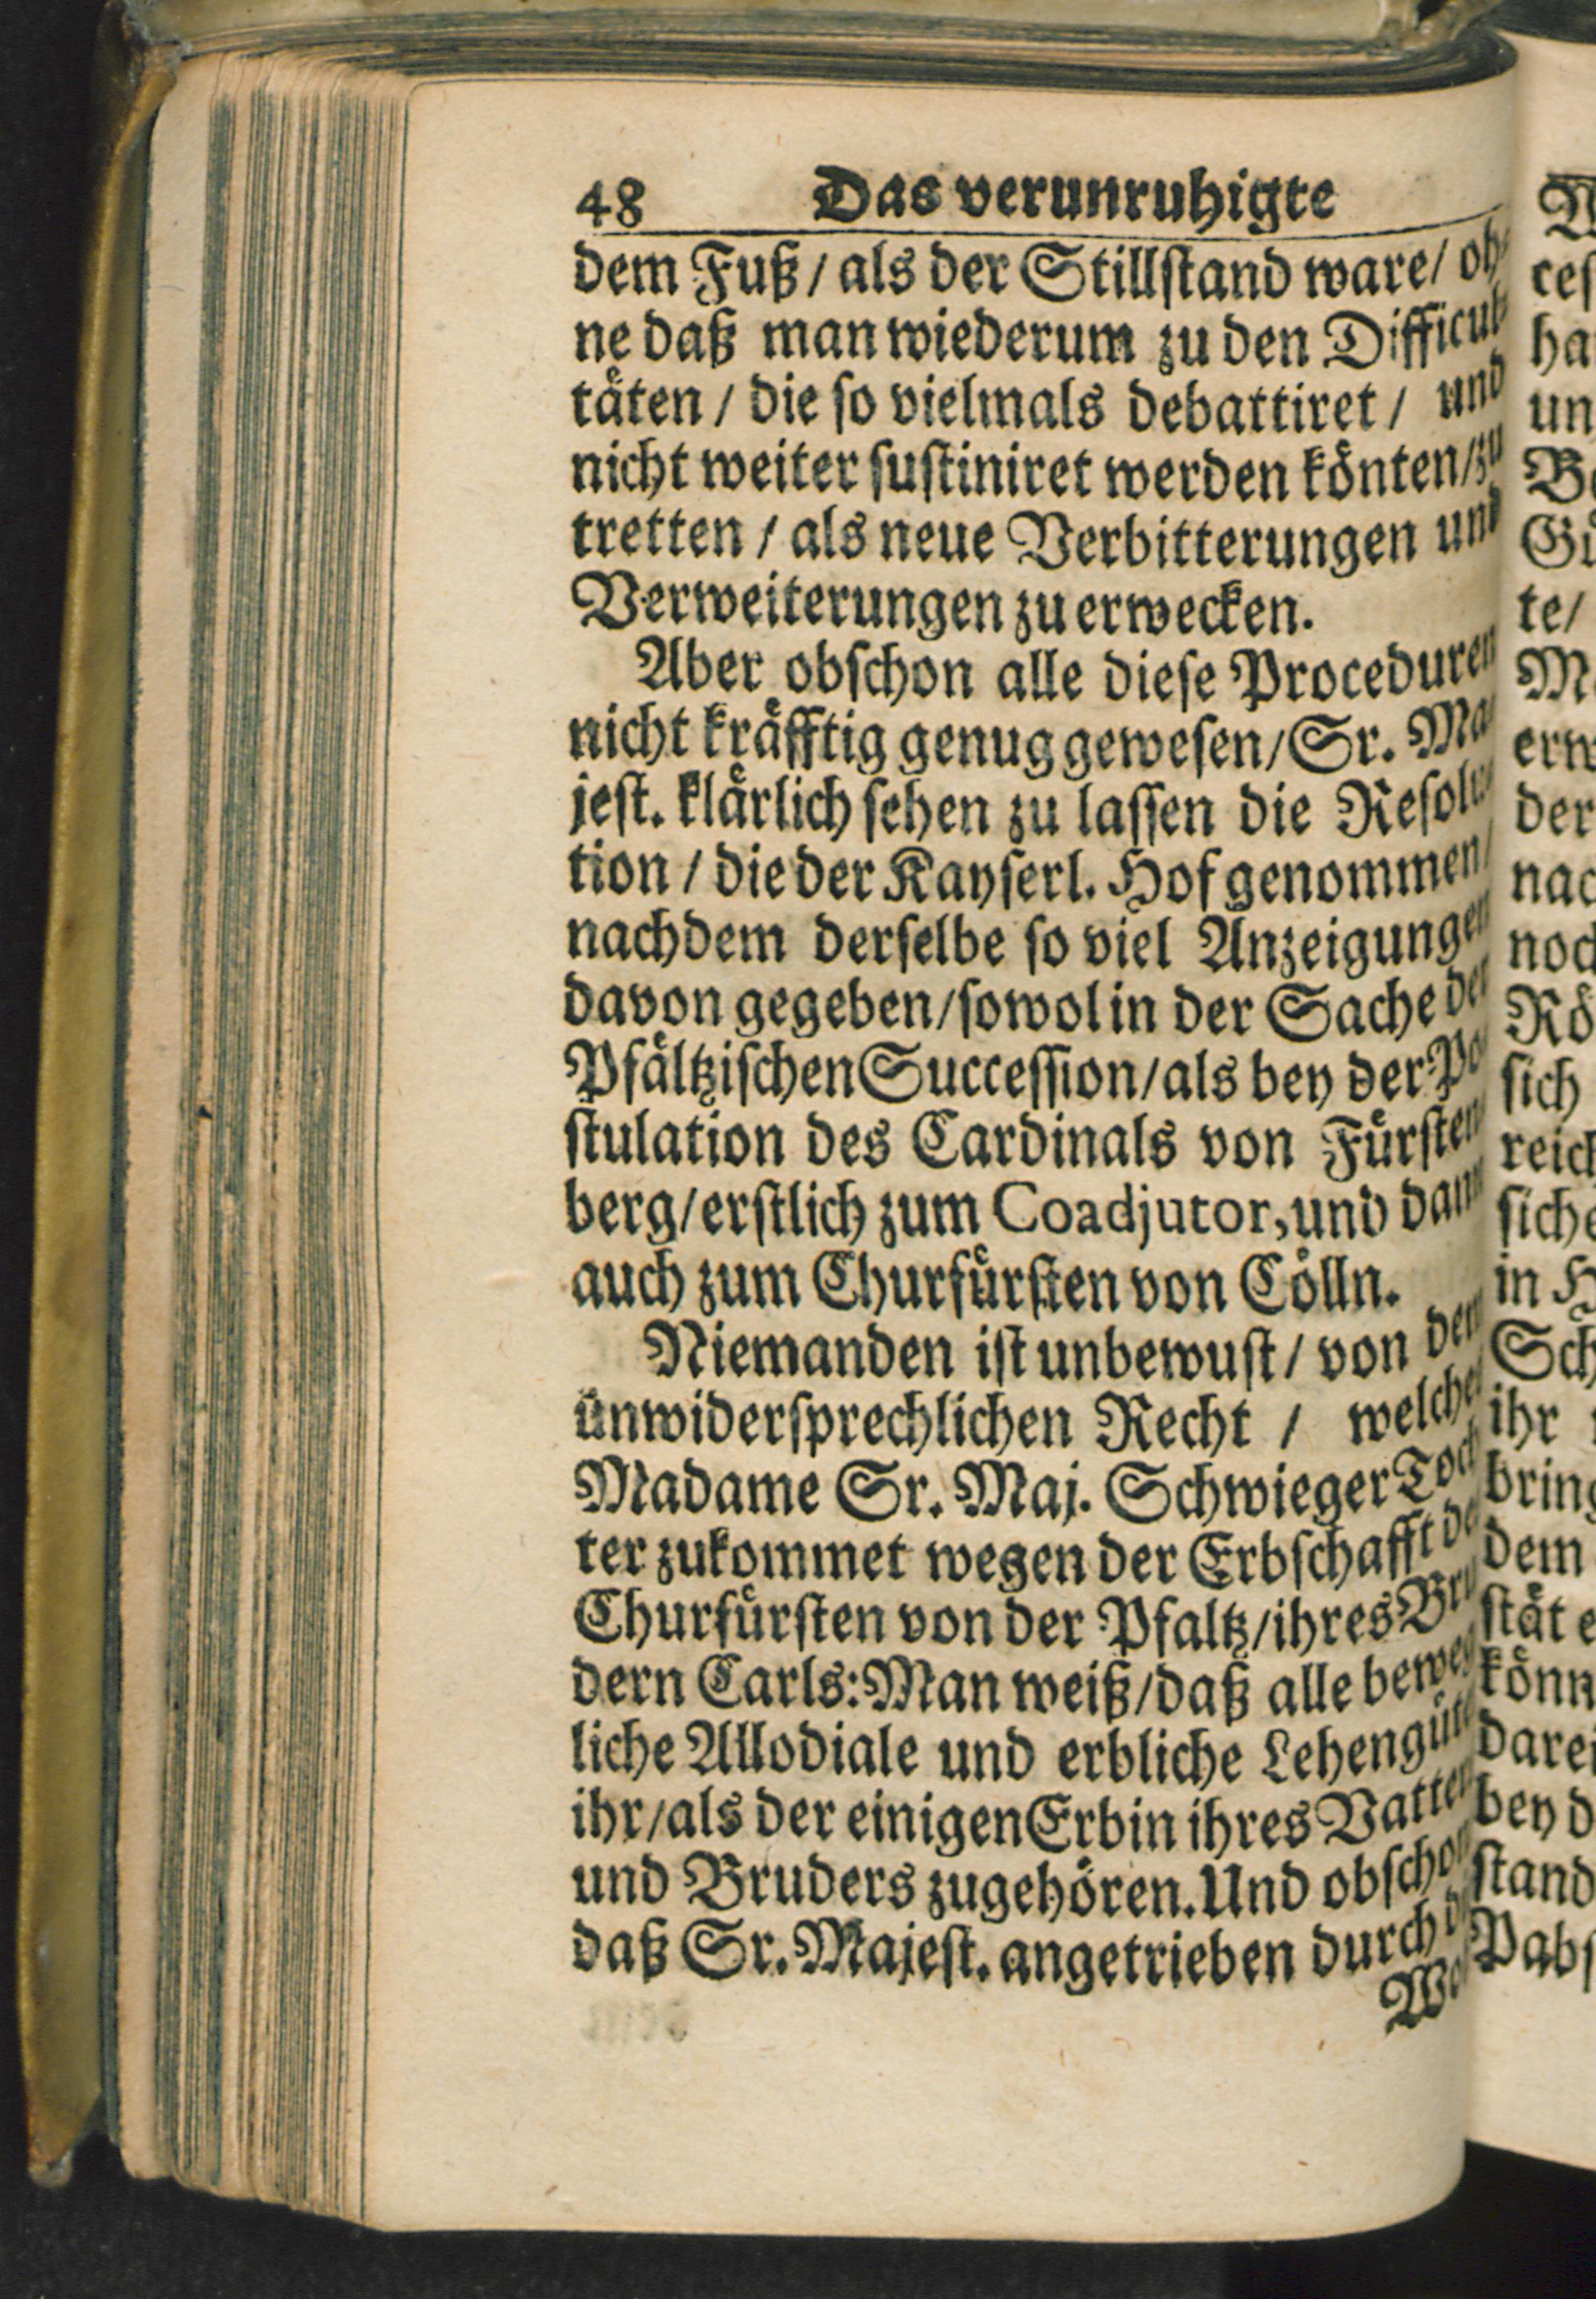 48 Das verunruhigte
dem Fuß / als der Stillstand ware / oh-
ne daß man wiederum zu den Difficul-
täten / die so vielmals debattiret / und
nicht weiter sustiniret werden könten / zu
tretten / als neue Verbitterungen und
Verweiterungen zu erwecken.
Aber obschon alle diese Proceduren
nicht kräfftig genug gewesen / Sr. Ma-
jest. klärlich sehen zu lassen die Resolu-
tion / die der Kayserl. Hof genommen /
nachdem derselbe so viel Anzeigungen
davon gegeben / sowol in der Sache der
Pfältzischen Succession / als bey der Po-
stulation des Cardinals von Fürsten-
berg / erstlich zum Coadjutor, und dann
auch zum Churfürsten von Cölln.
Niemanden ist unbewust / von dem
unwidersprechlichen Recht / welches
Madame Sr. Maj. Schwieger Toch-
ter zukommet wegen der Erbschafft
Churfürsten von der Pfaltz / ihres Bru-
dern Carls: Man weiß / daß alle beweg-
liche Allodiale und erbliche Lehengüter
ihr / als der einigen Erbin ihres Vatters
und Bruders zugehören. Und obschon
daß Sr. Majest. angetrieben durch